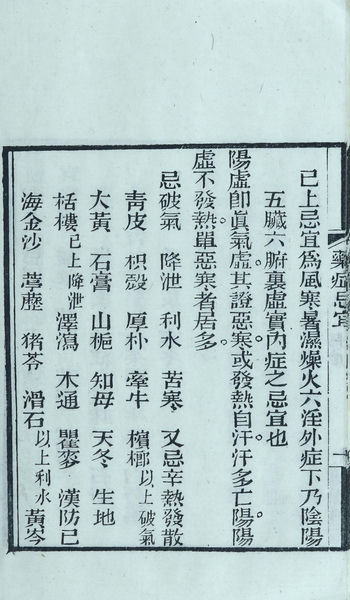 已上忌宜爲風寒暑濕燥火六淫外症下乃陰陽
五臟六腑裏虛實內症之忌宜也
陽虛卽眞氣虛其證惡寒或發熱自汗汗多亡陽陽
虛不發熱單惡寒者居多
忌破氣 降泄 利水 苦寒 又忌辛熱發散
靑皮 枳殼 厚朴 牽牛 檳榔以上破氣
大黃 石膏 山梔 知母 天冬 生地
栝樓已上降泄 澤瀉 木通 瞿麥 漢防己
海金沙 葶藶 猪苓 滑石以上利水 黃岑
藥症忌宜
一